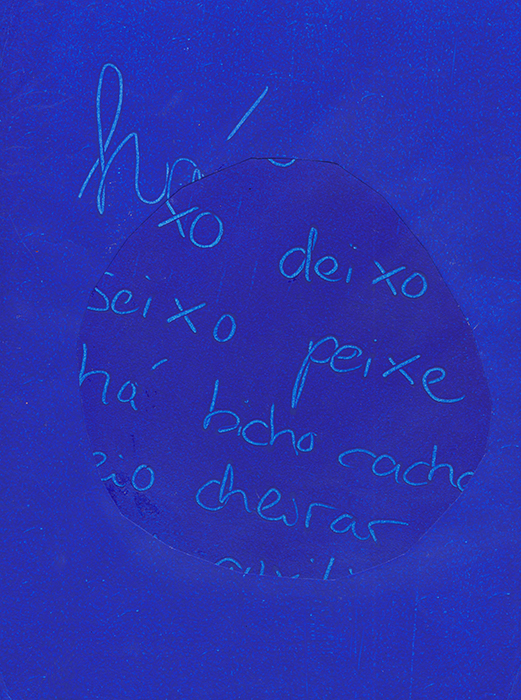 há
xo deixo
seixo peixe
há bicho cacho
eio cheirar